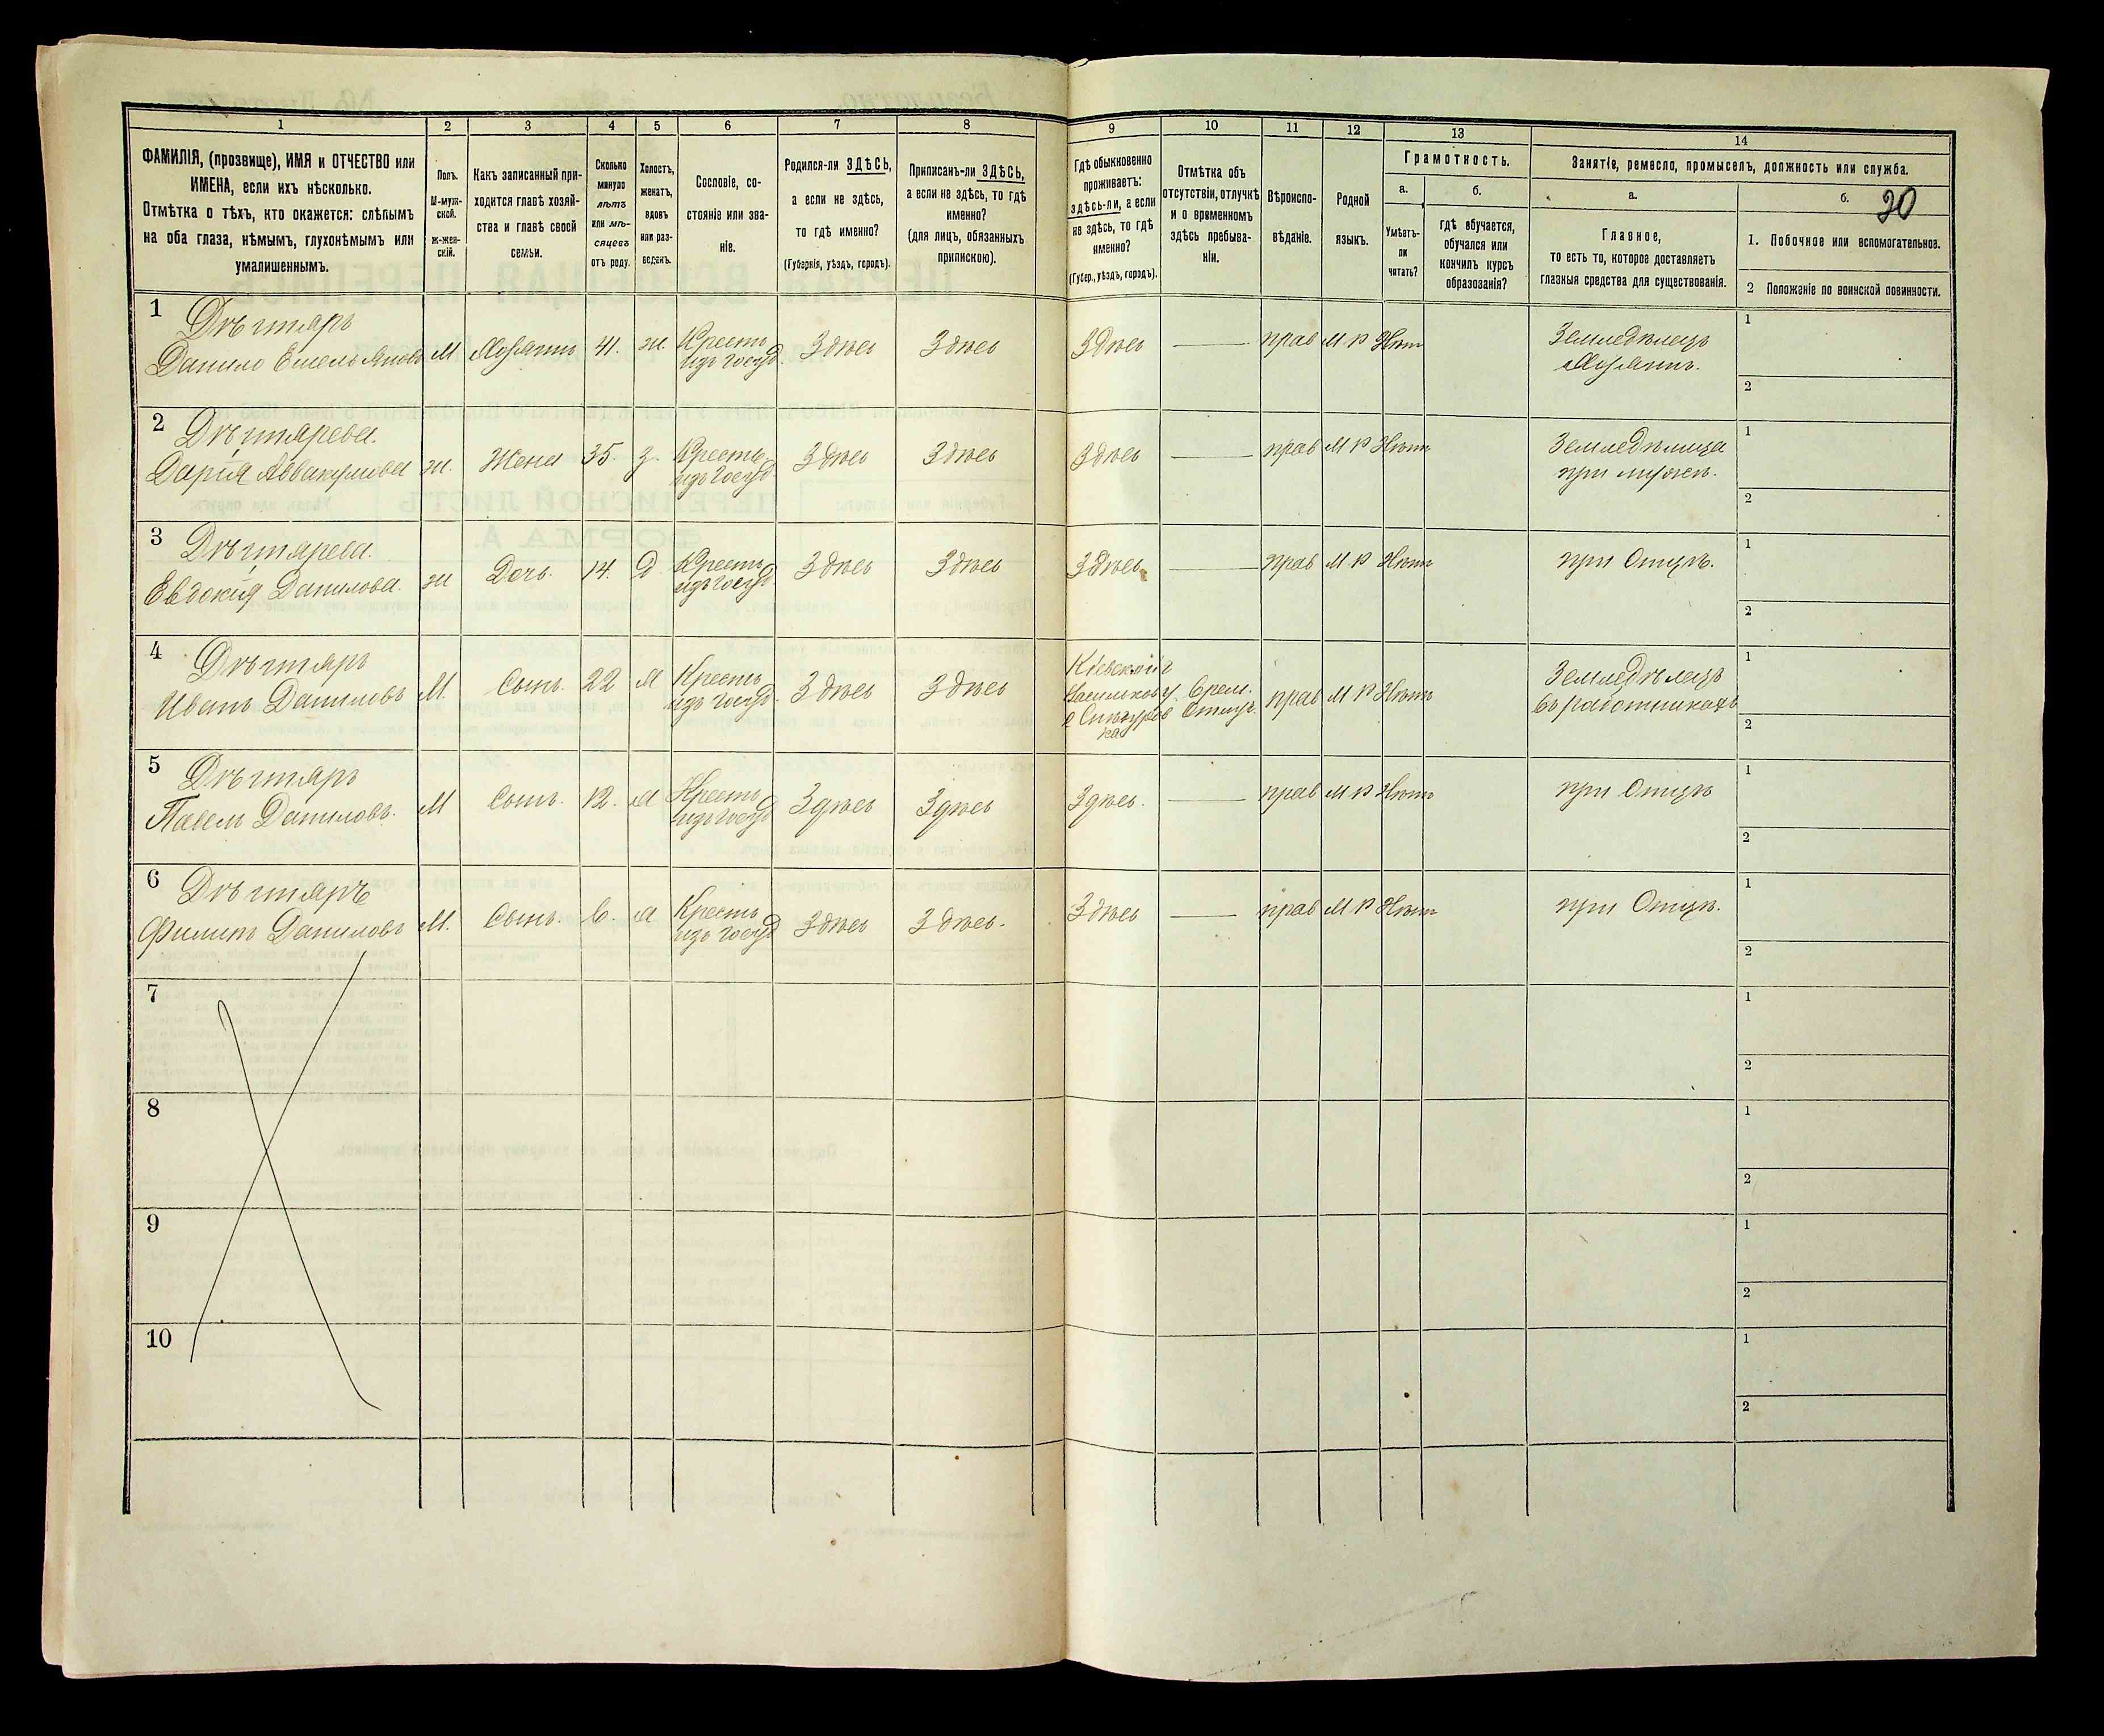 1
2
3
4
5
6
7
8
9
10
11
12
13
14
ФАМИЛІЯ, (прозвище), ИМЯ и ОТЧЕСТВО или
ИМЕНА, если ихъ нѣсколько.
Отмѣтка о тѣхъ, кто окажется: слѣпымъ
на оба глаза, нѣмымъ, глухонѣмымъ или
умалишеннымъ.
Полъ.
М-муж-
ской.
Ж-жен-
скій.
Какъ записанный при-
ходится главѣ хозяй-
ства и главѣ своей
семьи.
Сколько
минуло
лѣтъ
или мѣ-
сяцевъ
отъ роду.
Холостъ,
женатъ,
вдовъ
или раз-
веденъ.
Сословіе, со-
стояніе или зва-
ніе.
Родился-ли ЗДѢСЬ,
а если не здѣсь,
то гдѣ именно?
(Губернія, уѣздъ, городъ).
Приписанъ-ли ЗДѢСЬ,
а если не здѣсь, то гдѣ
именно?
(для лицъ, обязанныхъ
припискою).
Гдѣ обыкновенно
проживаетъ:
здѣсь-ли, а если
не здѣсь, то гдѣ
именно?
(Губер., уѣздъ, городъ).
Отмѣтка объ
отсутствіи, отлучкѣ
и о временномъ
здѣсь пребыва-
ніи.
Вѣроиспо-
вѣданіе.
Родной
языкъ.
Грамотность.
а.
Умѣетъ-
ли
читать?
б.
гдѣ обучается,
обучался или
кончилъ курсъ
образованія?
Занятіе, ремесло, промыселъ, должность или служба.
а.
Главное,
то есть то, которое доставляетъ
главныя средства для существованія.
б.
20
1. Побочное или вспомогательное.
2 Положеніе по воинской повинности.
1
Дѣгтярь
Данило Емельяновъ
М
Хозяинъ
41.
ж.
Кресть
изъ госуд.
Здѣсь
Здѣсь
Здѣсь
прав
М. р
Нѣтъ
Земледѣлецъ
Хозяинъ.
1
2
2
Дѣгтярева.
Дарія Аввакумова
ж.
Жена
35.
з.
Кресть
изъ госуд.
Здѣсь
Здѣсь
Здѣсь
прав
М р
Нѣтъ
Земледѣлица
при мужѣ.
1
2
3
Дѣгтярева.
Евдокия Данилова.
ж
Дочь.
14.
Д
Кресть
изъ госуд
Здѣсь
Здѣсь
Здѣсь
прав
М. р
Нѣтъ
при Отцѣ.
1
2
4
Дѣгтярь
Иванъ Даниловъ
М.
Сынъ.
22
Кресть
изъ госуд.
Здѣсь
Здѣсь
Кіевской г
Васильков у.
Врем.
Отлуч.
прав
М р
Нѣтъ
Земледѣлецъ
въ работникахъ
1
2
5
Дѣгтярь
Павелъ Даниловъ.
М
Сынъ.
12.
Кресть
изъ госуд
Здѣсь
Здѣсь
Здѣсь.
прав
М р
Нѣтъ
при Отцѣ
1
2
6
Дѣгтяръ
Филипъ Даниловъ
М.
Сынъ.
6.
Кресть
изъ госуд
Здѣсь
Здѣсь.
Здѣсь
прав
М р
Нѣтъ
при Отцѣ.
1
2
7
1
2
8
1
2
9
1
2
10
1
2